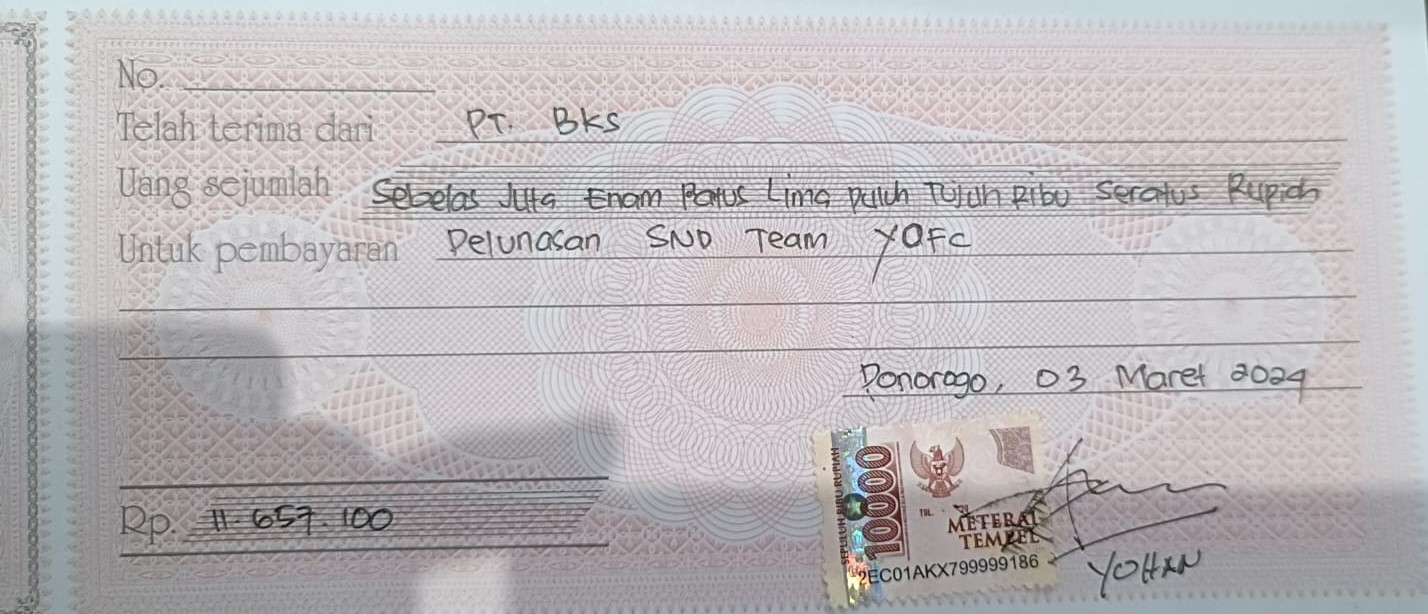 No.
Telah terima dari PT. BKS
Uang sejumlah Sebelas Juta Enam Ratus Lima Puluh Tujuh Ribu Seratus Rupiah
Untuk pembayaran Pelunasan SND Team YOFC
Ponorogo, 03 Maret 2024
SEPULUH RIBU RUPIAH
10000
TGL.
METERAI
TEMPEL
2EC01AKX799999186
Rp. 11.657.100
YOHAN